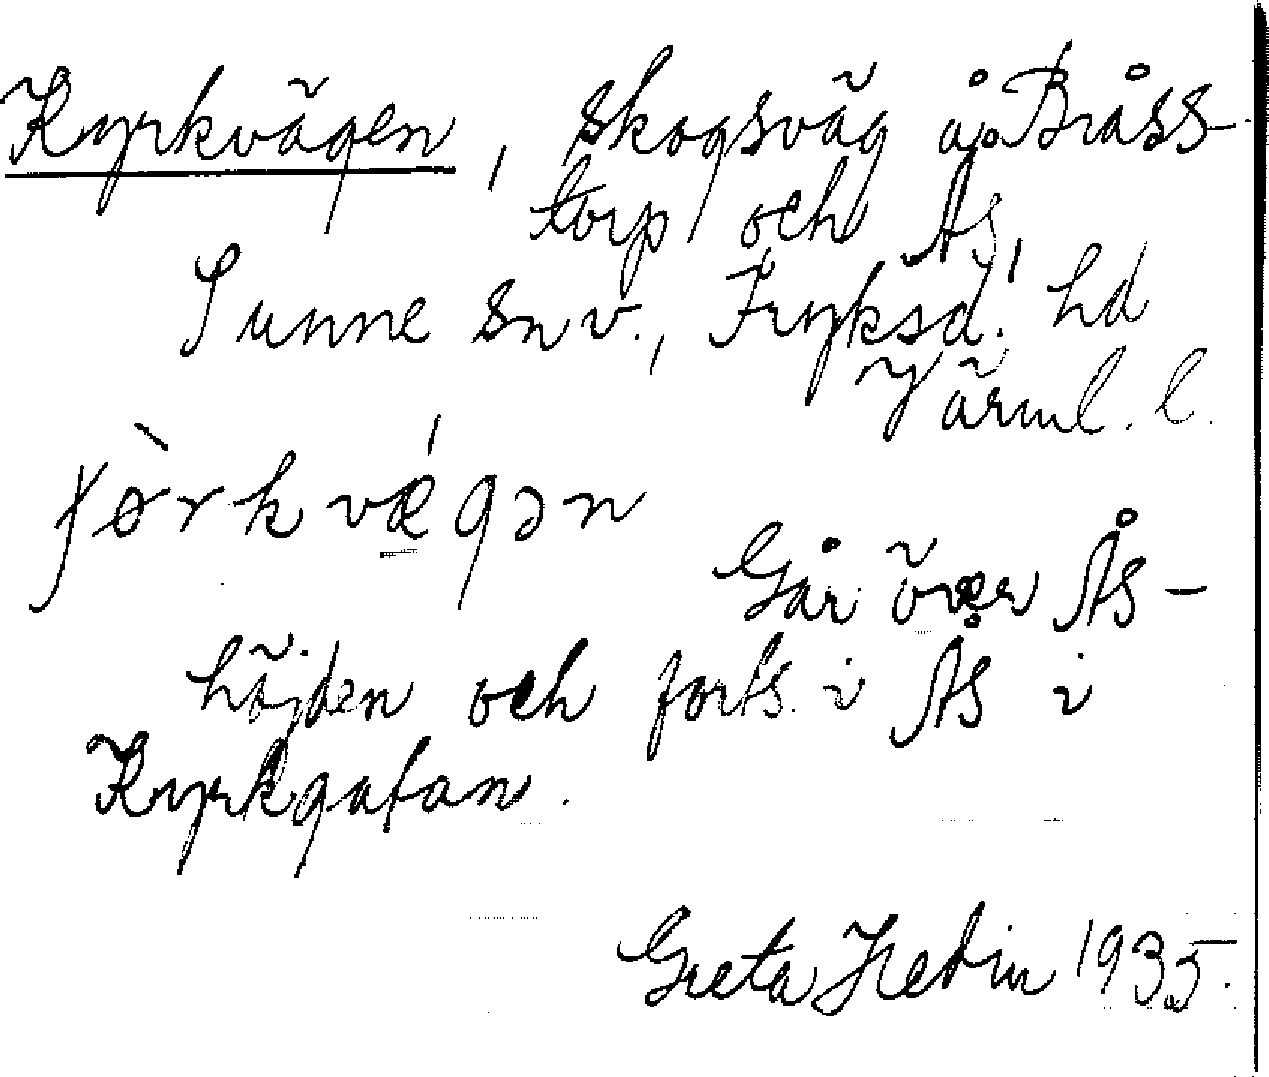 Kyrkvägen, skogsväg å Bråss-
torp och Ås,
Sunne sn v., Fryksd. hd
Värml. l.
Går över Ås-
höjden och forts. i Ås i
Kyrkgatan.
Greta Hedin 1935.